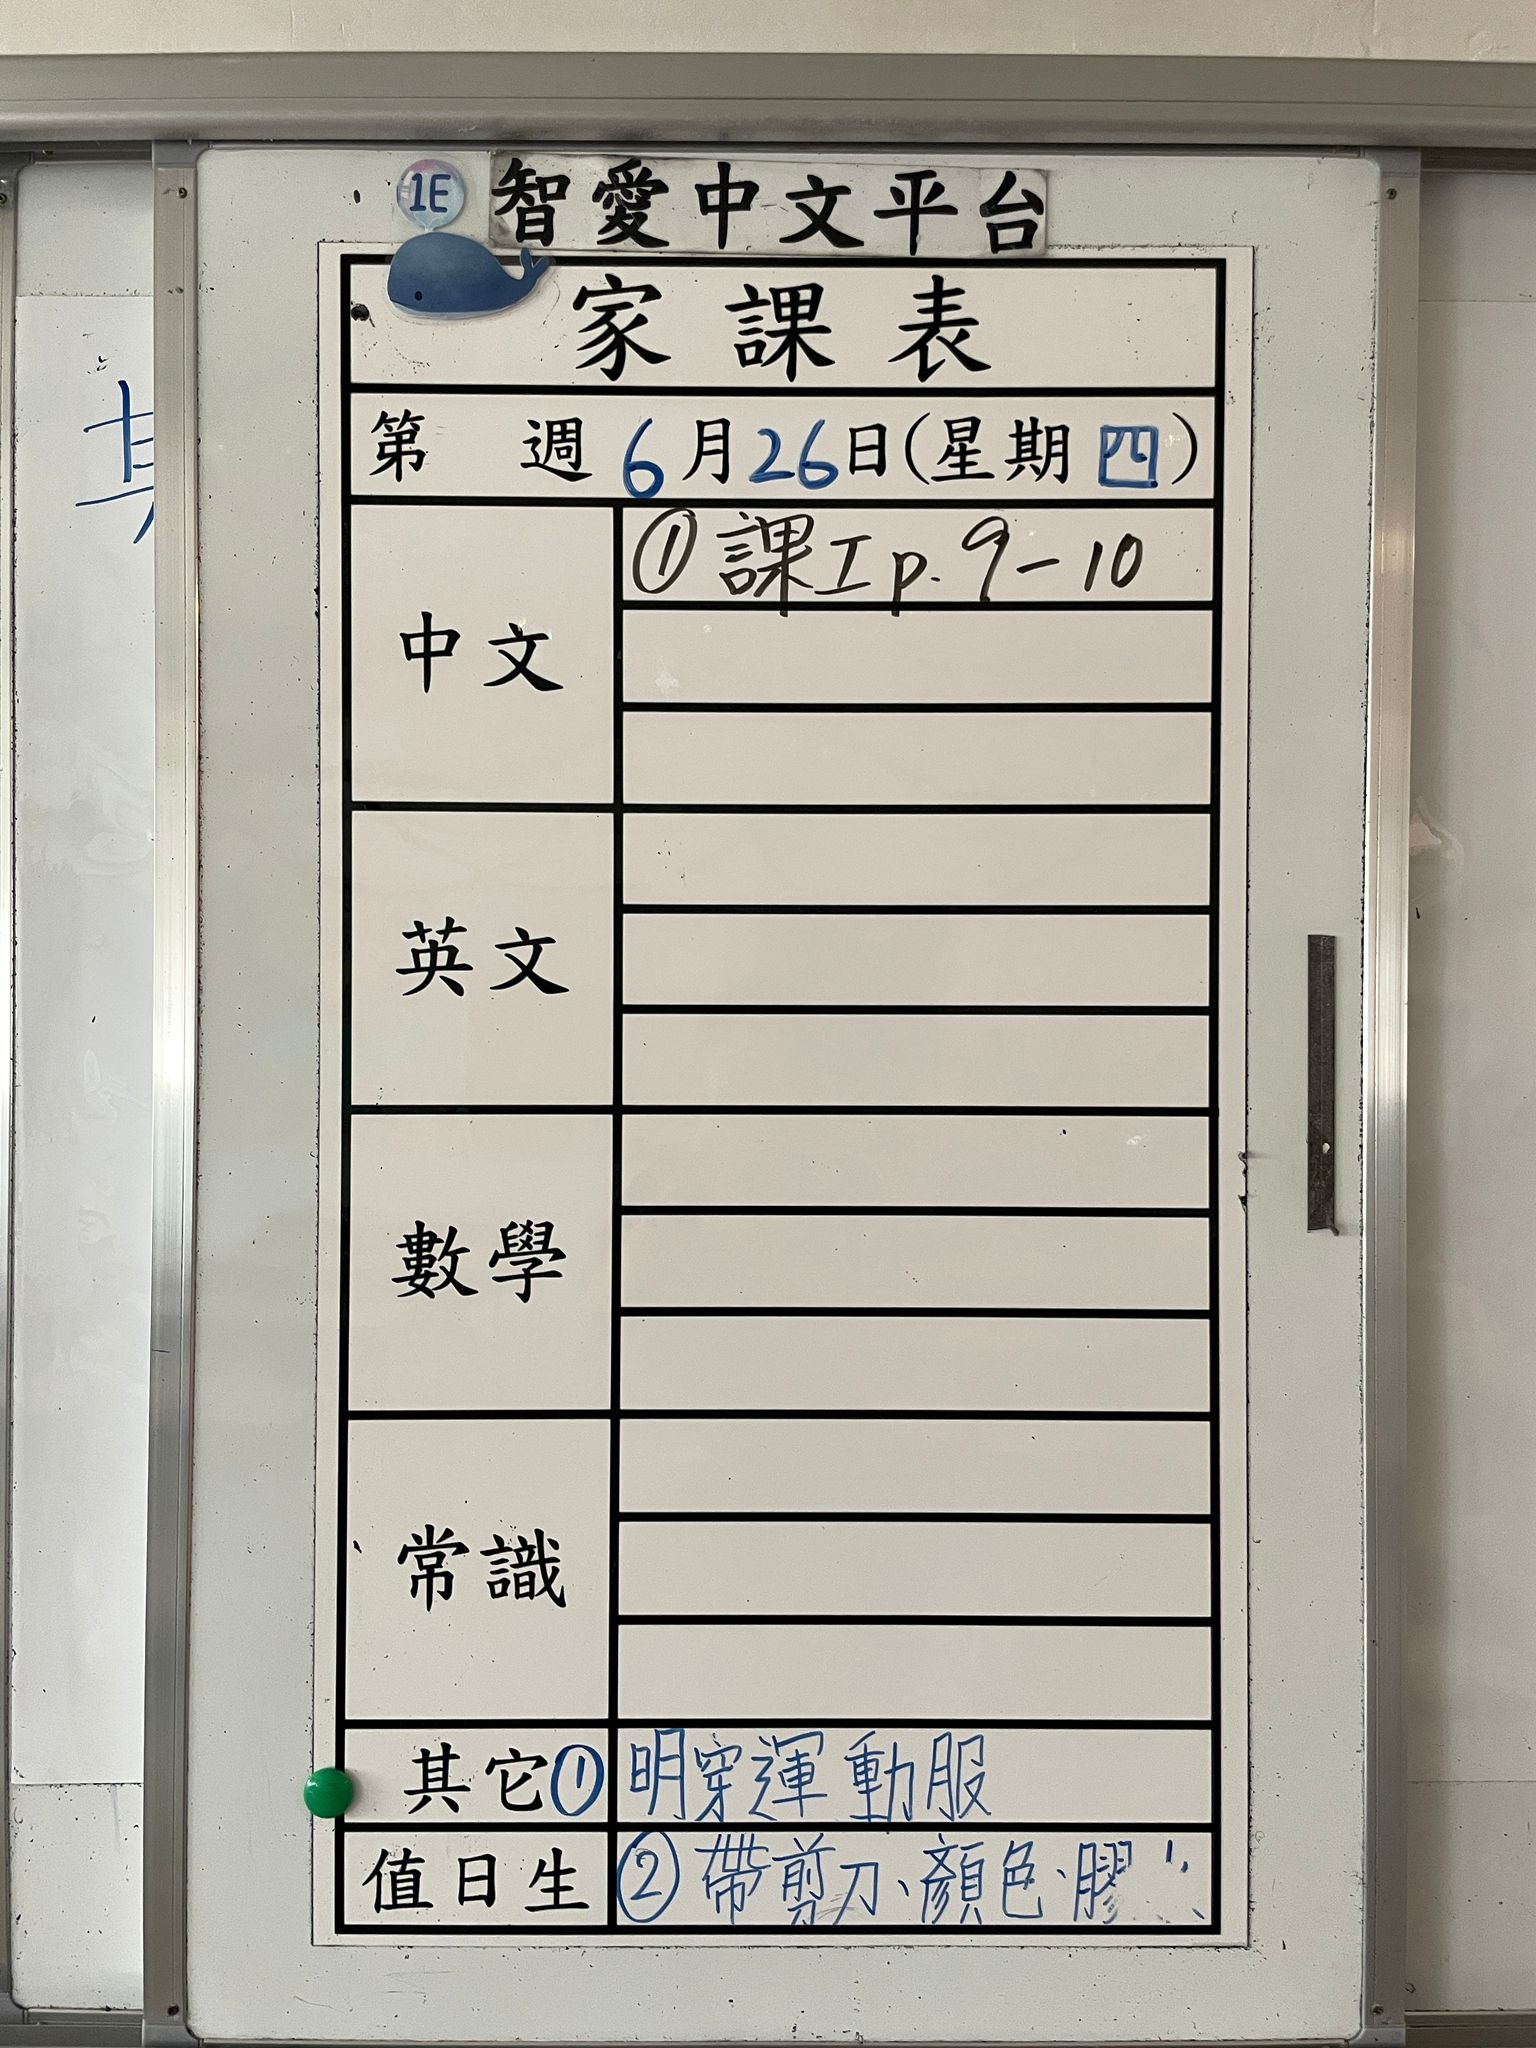 1E 智愛中文平台
家課表
第 週 6月26日(星期四)
中文 ①課工p.9-10
英文
數學
常識
其它① 明穿運動服
值日生 ②帶剪刀、顏色、膠